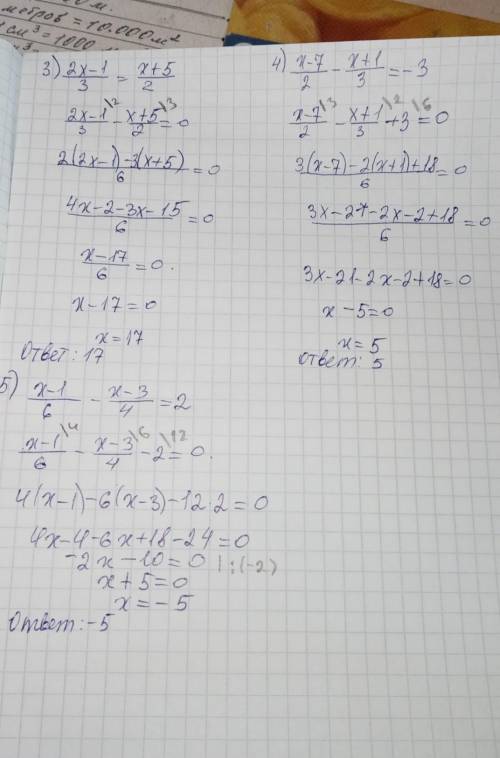 метров = 10.000 м²
см³ = 1000
3) (2x-1)/3 = (x+5)/2
(2x-1)/3 \2 - (x+5)/2 \3 = 0
(2(2x-1)-3(x+5))/6 = 0
(4x-2-3x-15)/6 = 0
(x-17)/6 = 0.
x-17=0
x=17
Ответ: 17
4) (x-7)/2 - (x+1)/3 = -3
(x-7)/2 \3 - (x+1)/3 \2 + 3 \6 = 0
(3(x-7)-2(x+1)+18)/6 = 0
(3x-21-2x-2+18)/6 = 0
3x-21-2x-2+18=0
x-5=0
x=5
ответ: 5
5) (x-1)/6 - (x-3)/4 = 2
(x-1)/6 \4 - (x-3)/4 \6 - 2 \12 = 0.
4(x-1)-6(x-3)-12·2=0
4x-4-6x+18-24=0
-2x-10=0 |:(-2)
x+5=0
x=-5
Ответ: -5